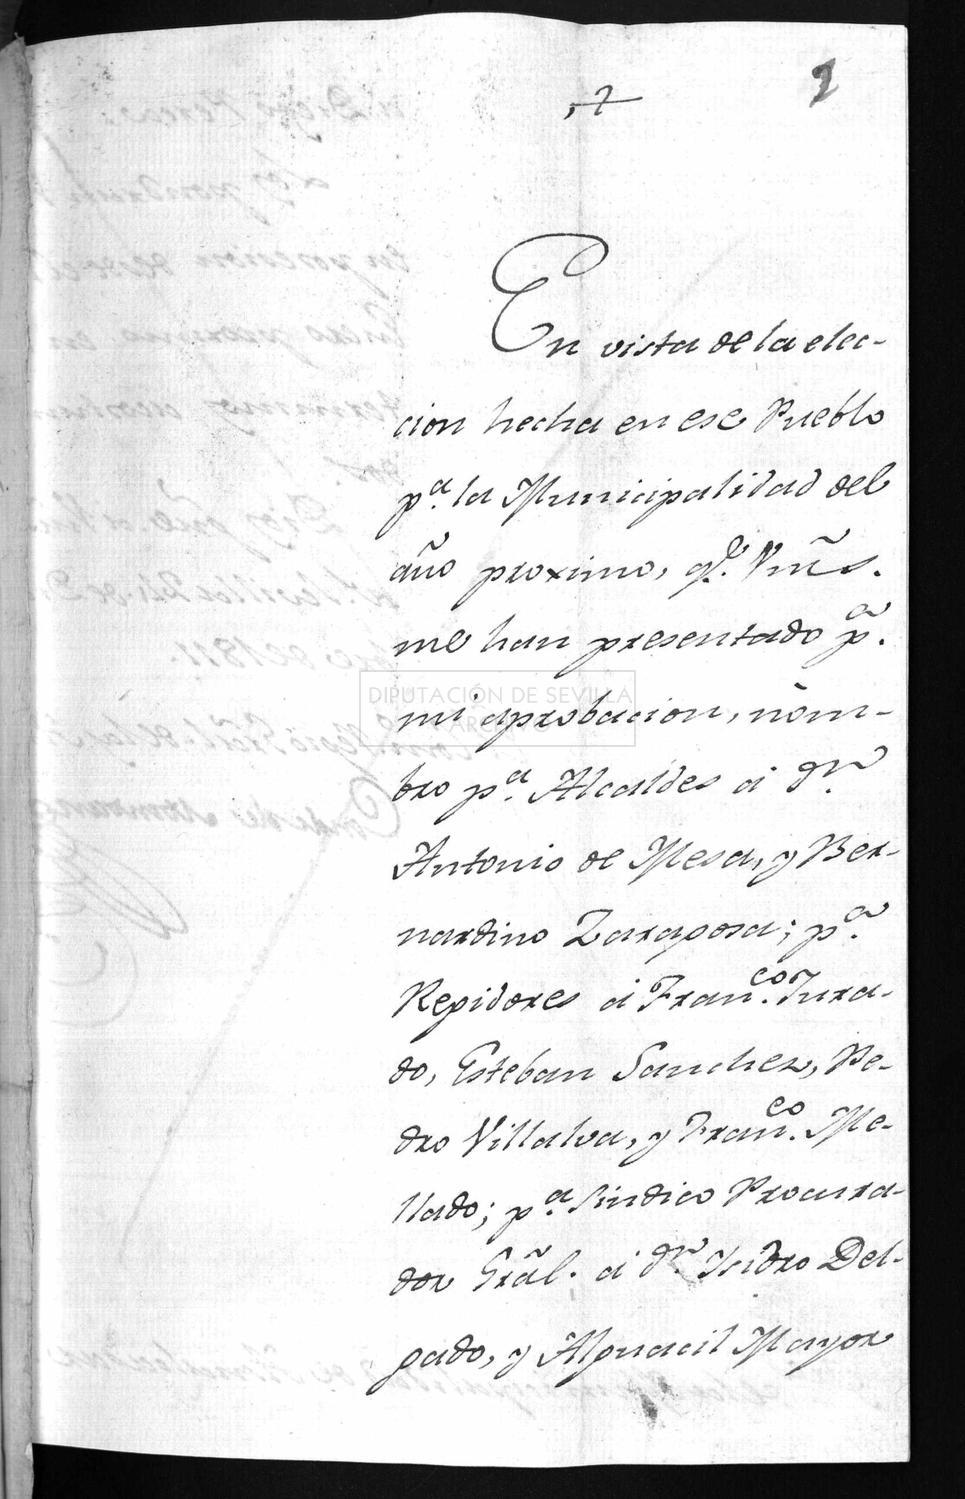 2
En vista de la elec-
cion hecha en ese Pueblo
pª. la Municipalidad del
año proximo, qe. Vmȓs.
me han presentado pª.
mi aprobacion, nom-
bro pª. Alcaldes á dn.
Antonio de Mesa, y Ber-
nardino Zaragosa; pª.
Regidores á Franco. Jura-
do, Esteban Sanchez, Pe-
dro Villalva, y Franco. Me-
llado; pª. Sindico Procura-
dor Gral. á dn. Isidro Del-
gado, y Alguacil Mayor
DIPUTACIÓN DE SEVILLA
ARCHIVO